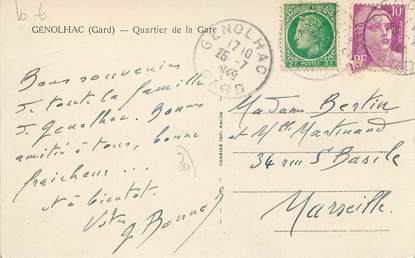 GENOLHAC (Gard) — Quartier de la Gare
GENOLHAC
17 10
25 -7
1949
GARD
POSTES
10F
RF
Bons souvenirs
de toute la famille
de Genolhac. Bonne
amitié à tous, bonne
fraicheur ...
A bientôt.
Votre
Madame Bertin
et Mlle Martinand
34 rue St Basile
Marseille.